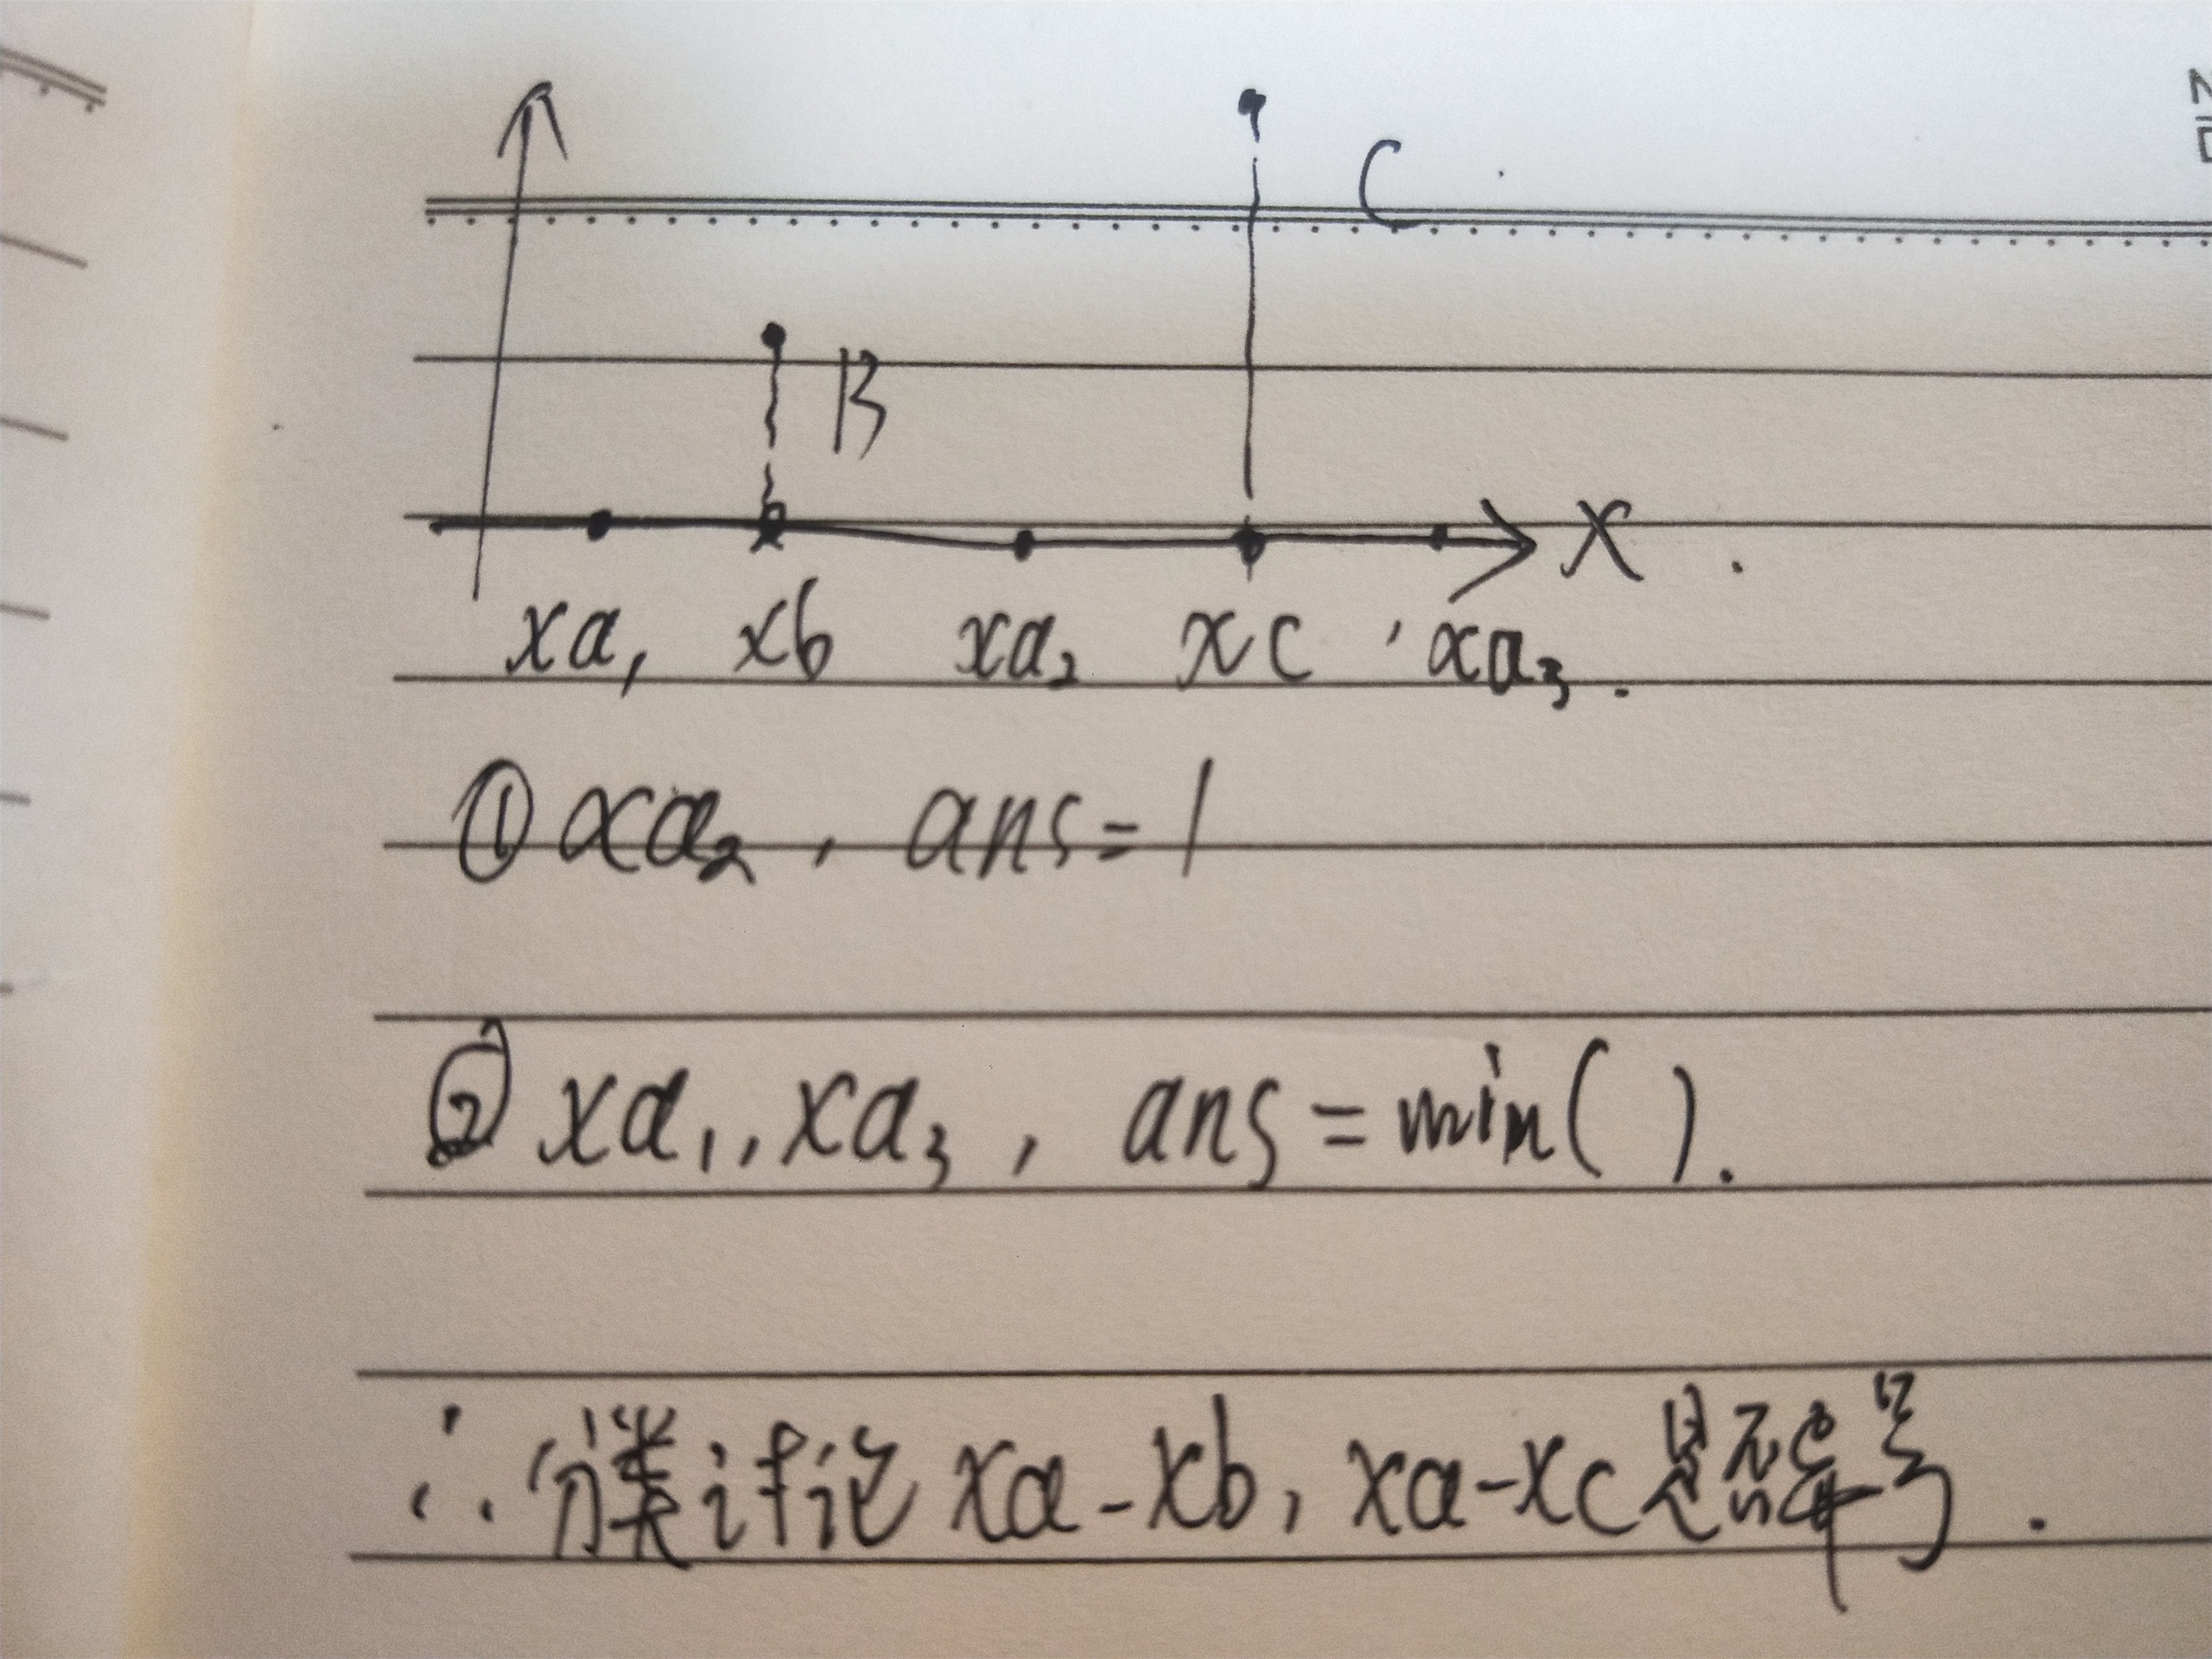 C
B
X
xa₁ xb xa₂ xc xa₃.
① xa₂, ans=1
② xa₁, xa₃, ans=min( ).
∴分类讨论 xa-xb, xa-xc是否异号.